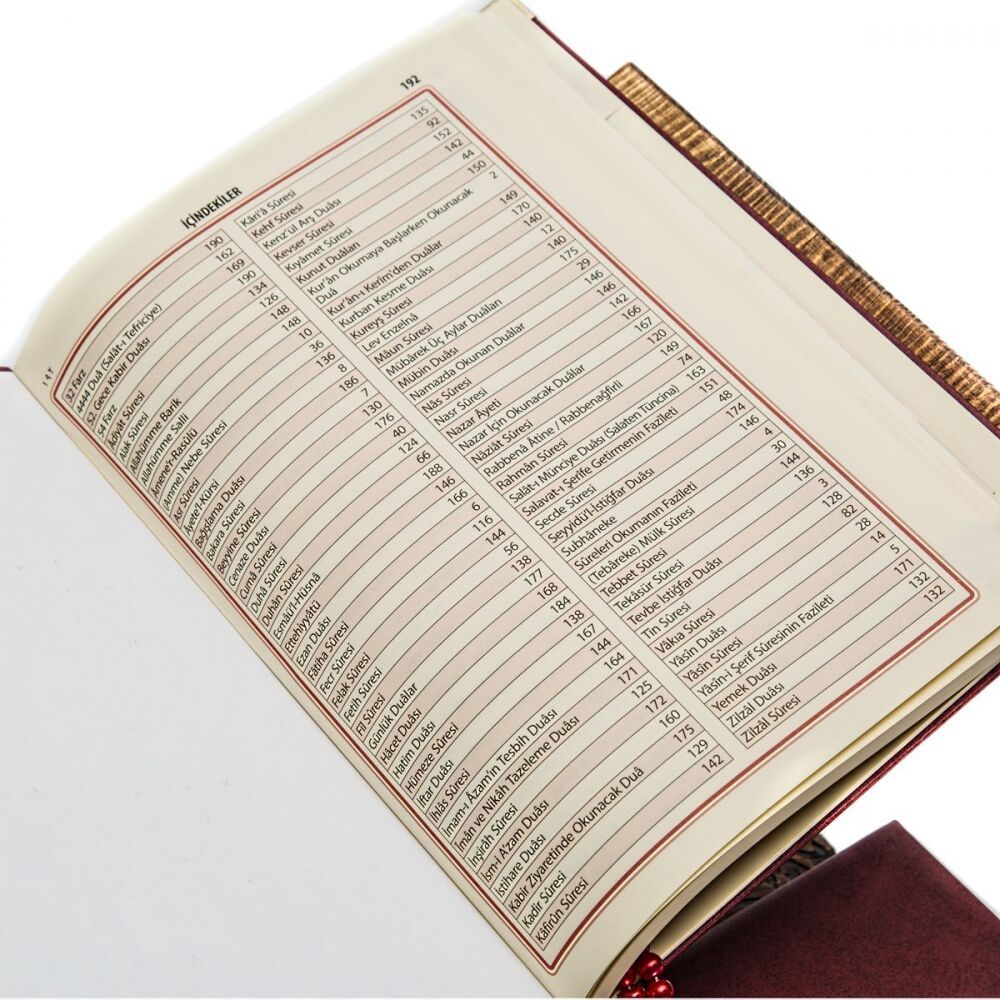 192
İÇİNDEKİLER
32 Farz 190
4444 Duâ (Salât-ı Tefriciye) 162
52. Gece Kabir Duâsı 169
54 Farz 190
Âdiyât Sûresi 134
Alak Sûresi 126
Allahümme Barik 148
Allahümme Salli 148
Âmene'r-Rasülü 10
(Amme) Nebe Sûresi 36
Asr Sûresi 136
Âyete'l-Kürsi 8
Bağışlama Duâsı 186
Bakara Sûresi 7
Beyyine Sûresi 130
Cenaze Duâsı 176
Cumâ Sûresi 40
Duhâ Sûresi 124
Duhân Sûresi 66
Esmâü'l-Hüsnâ 188
Ettehiyyâtü 146
Ezan Duâsı 166
Fâtiha Sûresi 6
Fecr Sûresi 116
Felak Sûresi 144
Feth Sûresi 56
Fîl Sûresi 138
Günlük Duâlar 177
Hâcet Duâsı 168
Hatim Duâsı 184
Hümeze Sûresi 138
İftar Duâsı 167
İhlâs Sûresi 144
İmam-ı Âzam'ın Tesbih Duâsı 164
İmân ve Nikâh Tazeleme Duâsı 171
İnşirâh Sûresi 125
İsm-i A'zam Duâsı 172
İstihare Duâsı 160
Kabir Ziyaretinde Okunacak Duâ 175
Kadir Sûresi 129
Kâfirûn Sûresi 142
Kâri'â Sûresi 135
Kehf Sûresi 92
Kenz'ül Arş Duâsı 152
Kevser Sûresi 142
Kıyâmet Sûresi 44
Kunut Duâları 150
Kur'ân Okumaya Başlarken Okunacak 2
Duâ
Kur'ân-ı Kerim'den Duâlar 149
Kurban Kesme Duâsı 170
Kureyş Sûresi 140
Lev Enzelnâ 12
Mâun Sûresi 140
Mübârek Üç Aylar Duâları 175
Mübin Duâsı 29
Namazda Okunan Duâlar 146
Nâs Sûresi 146
Nasr Sûresi 142
Nazar Âyeti 166
Nazar İçin Okunacak Duâlar 167
Nâziât Sûresi 120
Rabbenâ Âtine / Rabbenağfirli 149
Rahmân Sûresi 74
Salât-ı Münciye Duâsı (Salaten Tüncina) 163
Salavat-ı Şerife Getirmenin Fazileti 151
Secde Sûresi 48
Seyyidü'l-İstiğfar Duâsı 174
Subhâneke 146
Sûreleri Okumanın Fazileti 4
(Tebâreke) Mülk Sûresi 30
Tebbet Sûresi 144
Tekâsür Sûresi 136
Tevbe İstiğfar Duâsı 3
Tîn Sûresi 128
Vâkıa Sûresi 82
Yâsîn Duâsı 28
Yâsîn Sûresi 14
Yâsîn-i Şerif Sûresinin Fazileti 5
Yemek Duâsı 171
Zilzâl Duâsı 132
Zilzâl Sûresi 132
١٩٢